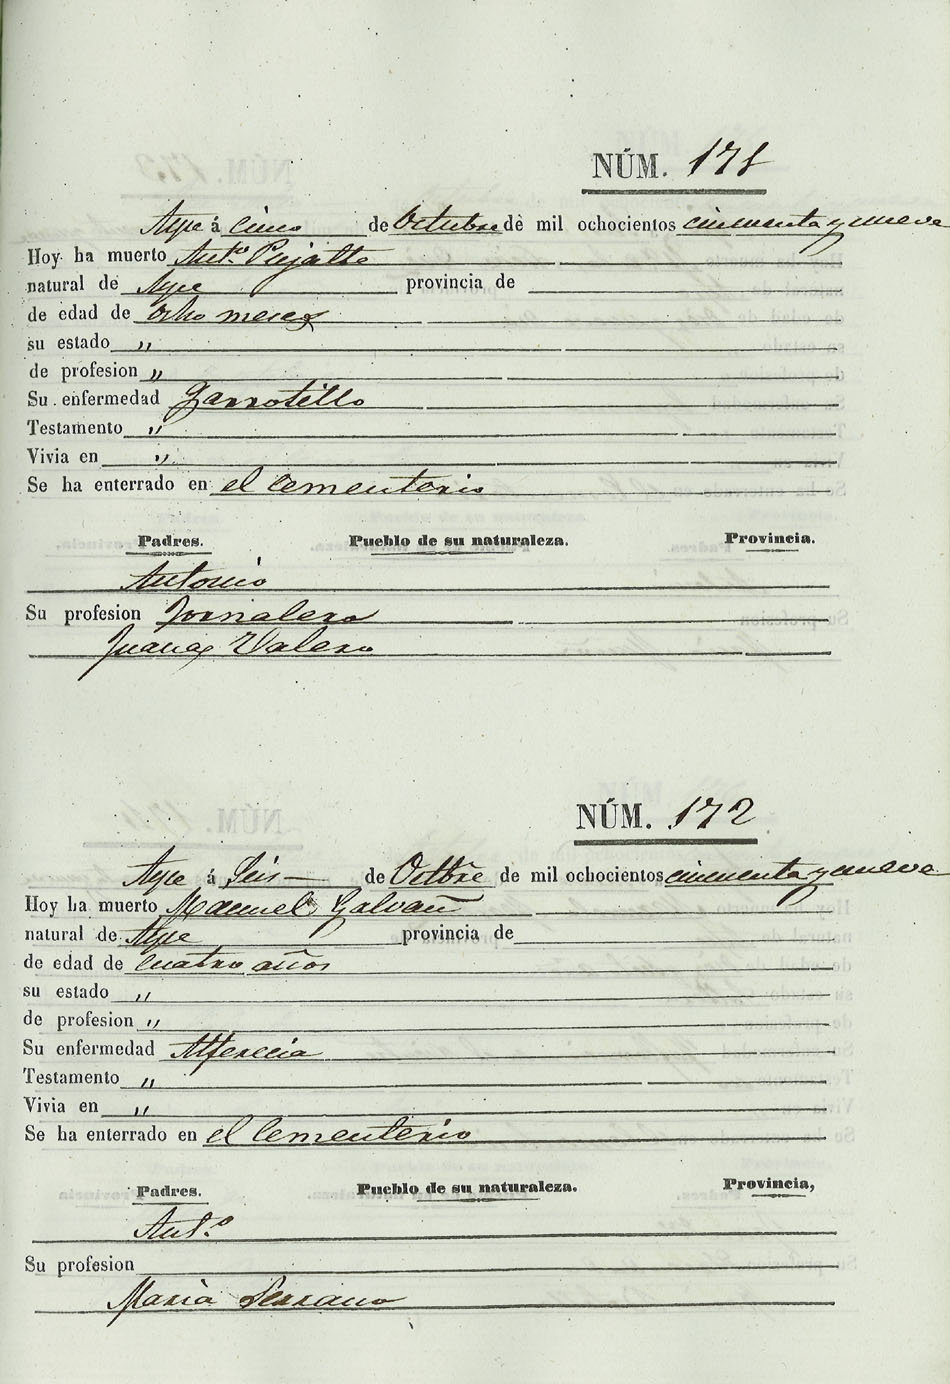 NÚM. 171
Aspe á cinco de Octubre de mil ochocientos cincuenta y nueve
Hoy ha muerto Ant.º Pujalte
natural de Aspe provincia de
de edad de ocho meses
su estado "
de profesion "
Su enfermedad Garrotillo
Testamento "
Vivia en "
Se ha enterrado en el Cementerio
Padres. Pueblo de su naturaleza. Provincia.
Antonio
Su profesion Jornalero
Juana Valero
NÚM. 172
Aspe á Seis de Octbre de mil ochocientos cincuenta y nueve
Hoy ha muerto Manuel Galvañ
natural de Aspe provincia de
de edad de cuatro años
su estado "
de profesion "
Su enfermedad Alferecia
Testamento "
Vivia en "
Se ha enterrado en el Cementerio
Padres. Pueblo de su naturaleza. Provincia,
Ant.º
Su profesion
Maria Serrano